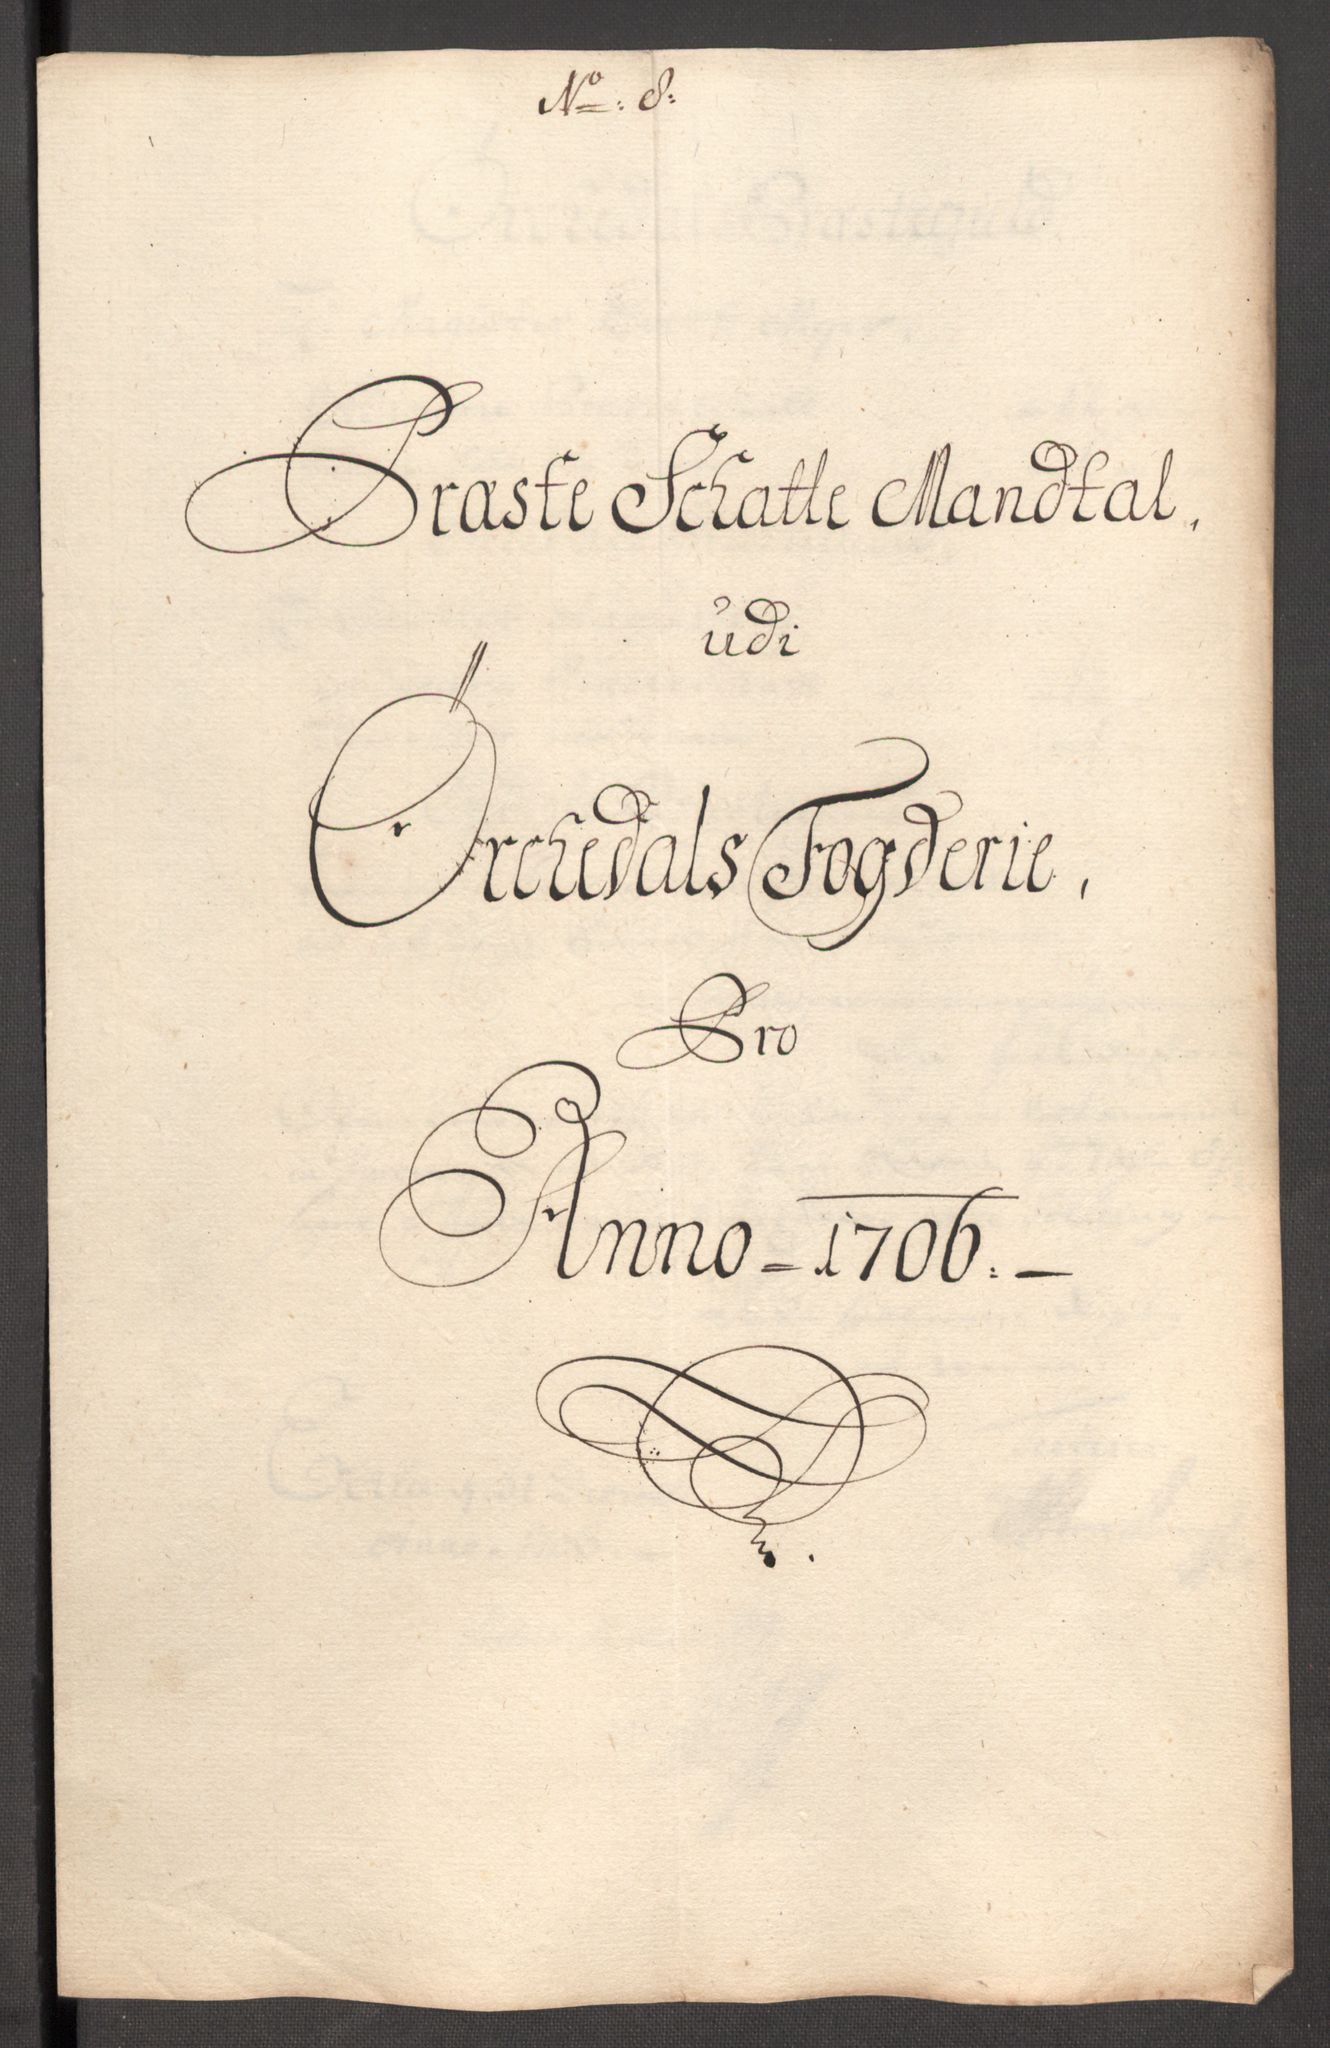 No: 8:
Præste Schatte Mandtal,
udi
Orchedals Fogderie,
Pro
Anno - 1706. -